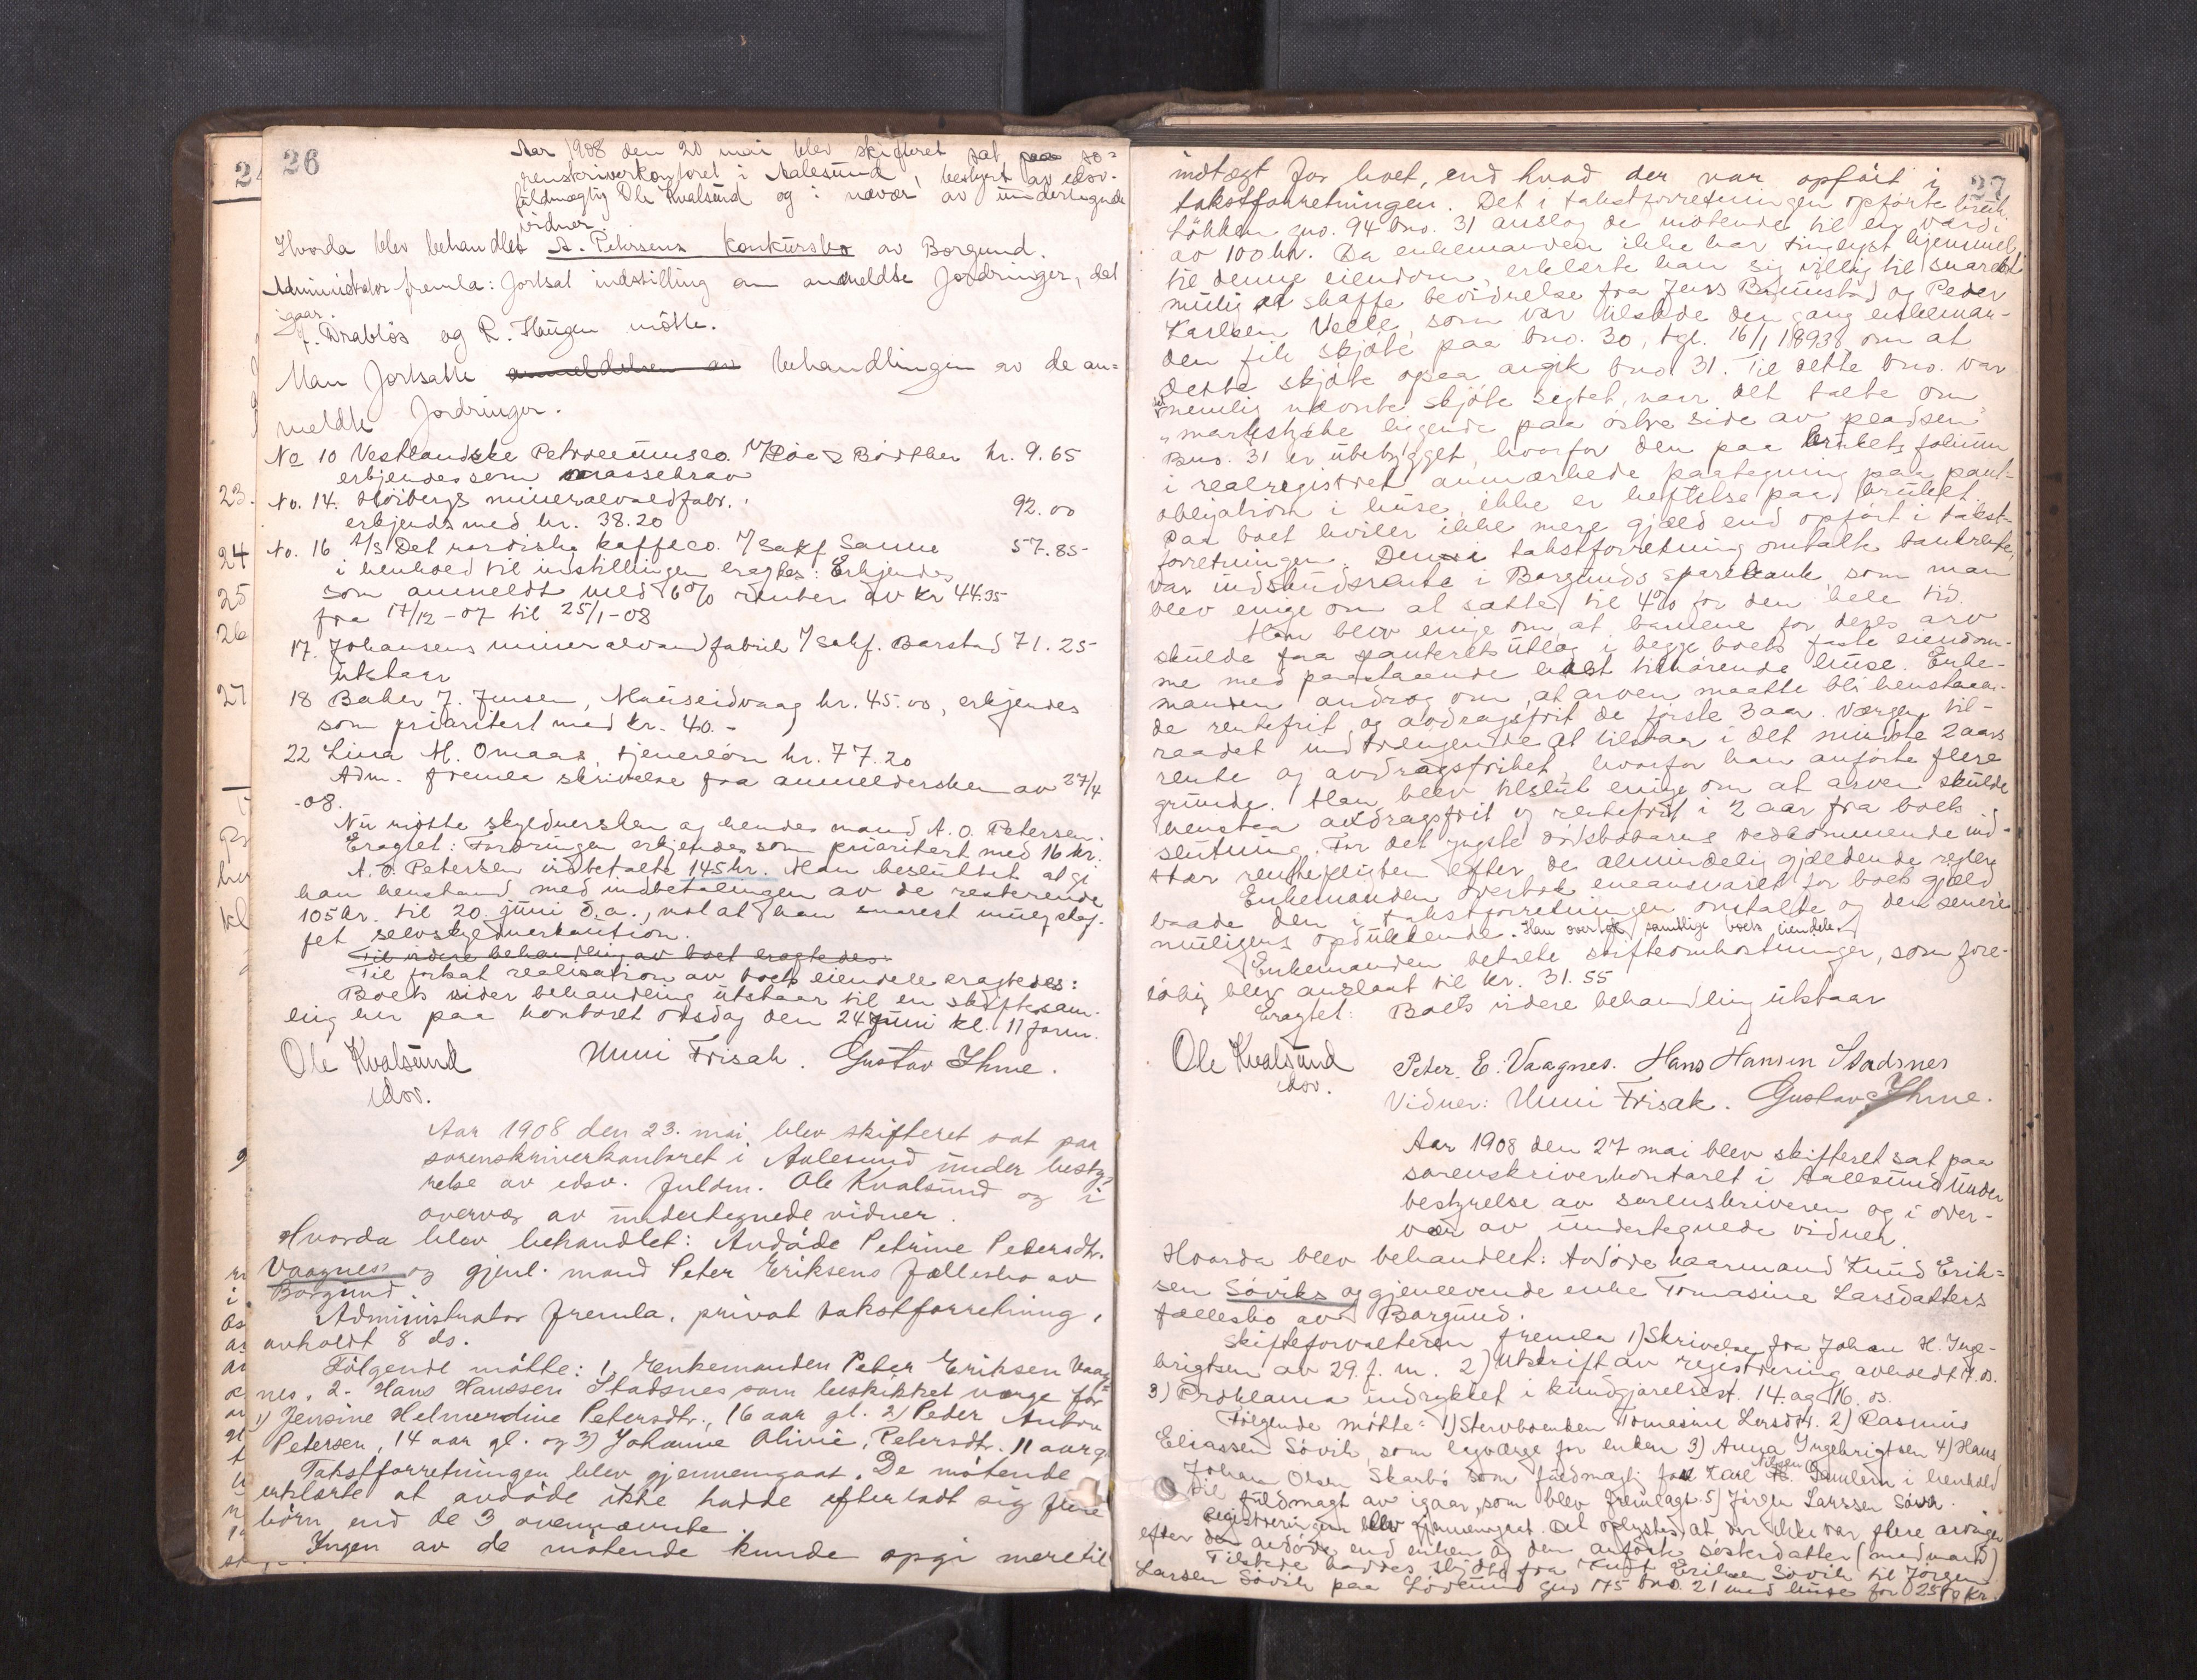 26
Aar 1908 den 20 mai blev skifteret sat paa so-
renskriverkontoret i Aalesund, bestyrt av edsv.
fuldmægtig Ole Kvalsund og i nærvær av undertegnede
vidner.
Hvorda blev behandlet A. Petersens konkursbo av Borgund.
Administrator fremla: fortsat indstilling om anmeldte fordringer, dat
igaar.
J. Drabløs og R. Haugen møtte.
Man fortsatte anmeldelsen av behandlingen av de an-
meldte fordringer.
No 10 Vestlandske Petroleumsco. kr. 9.65
erkjendes som massekrav
No. 14. Höibergs mineralvandfabr.: 92.00
erkjendes med kr. 38.20
No. 16 A/S Det nordiske kaffeco. v/ sakf. Sanne 57.85
i henhold til indstillingen eragtes: Erkjendes
som anmeldt med 6% renter av kr 44.35
fra 17/12-07 til 25/1-08
17. Johansens mineralvandfabrik v/ sakf. Barstad 71.25
utstaar
18 Baker J. Jensen, Mauseidvaag kr. 45.00, erkjendes
som prioritert med kr. 40.-
22 Lina M. Omaas, tjenerløn kr. 77.20
Adm. fremla skrivelse fra anmeldersken av 27/4
-08.
Nu møtte skyldnersken og hendes mand A. O. Petersen.
Eragtet: Fordringen erkjendes som prioritert med 16 kr.
A. O. Petersen indbetalte 145 kr. Man besluttet at gi
han henstand med indbetalingen av de resterende
105 kr. til 20. juni d.a., mot at han snarest mulig skaf-
fet selvskyldnerkaution.
Til videre behandling av boet eragtedes:
Til fortsat realisation av boets eiendele eragtedes:
Boets videre behandling utstaar til en skiftesam-
ling her paa kontoret onsdag den 24 juni kl. 11 form.
Ole Kvalsund Unni Frisak. Gustav Ihme.
edsv.
Aar 1908 den 23. mai blev skifteret sat paa
sorenskriverkontoret i Aalesund under besty-
relse av edsv. fuldm. Ole Kvalsund og i
overvær av undertegnede vidner.
Hvorda blev behandlet: Avdøde Petrine Petersdtr.
Vaagnes og gjenl. mand Peter Eriksens fællesbo av
Borgund.
Administrator fremla, privat takstforretning,
avholdt 8 ds.
Følgende møtte: 1, Enkemanden Peter Eriksen Vaag-
nes. 2- Hans Hanssen Stadsnes som beskikket verge for
1) Jensine Helmerdine Petersdtr., 16 aar gl. 2) Peder Anton
Petersen, 14 aar gl. og 3) Johanne Olivie Petersdtr. 11 aar g
Takstforretningen blev gjennemgaat. De møtende
erklærte at avdøde ikke hadde efterladt sig flere
børn end de 3 ovennævnte.
Ingen av de møtende kunde opgi mere til
23.
24
25
26
27
27
indtægt for boet, end hvad der var opført i
takstforretningen. Det i takstforretningen opførte bruk
Løkken gno. 94 bno. 31 anslog de møtende til en værdi
av 100 kr. Da enkemanden ikke har tinglyst hjemmel
til denne eiendom, erklærte han sig villig til snarest
mulig at skaffe bevidnelse fra Jens Brunstad og Peder
Karlsen Velle, som var tilstede den gang enkeman-
den fik skjøte paa bno. 30, tgl. 16/1 1893, om at
dette skjøte ogsaa angik bno 31. Til dette bno. var
nemlig nævnte skjøte sigtet, naar det talte om
"markstykke liggende paa østre side av pladsen"
Bno. 31 er ubebygget, hvorfor den paa brukets folium
i realregistret anmærkede paategning paa pant-
obligation i huse, ikke er heftelse paa bruket.
Paa boet hviler ikke mere gjæld end opført i takst-
forretningen. Den i takstforretning omtalte bankrente,
var indskudsrente i Borgunds sparebank, som man
blev enige om at sætte til 4% for den hele tid.
Man blev enige om, at barnene for deres arv
skulde faa panteret utlæg i begge boets faste eiendom-
me med paastaaende boet tilhørende huse. Enke-
manden androg om, at arven maatte bli henstaaen-
de rentefrit og avdragsfrit de første 3 aar. Værgen til-
raadet indtrængende at tilstaa i det mindste 2 aars
rente og avdragsfrihet, hvorfor han anførte flere
grunde. Man blev tilslut enige om at arven skulde
henstaa avdragsfrit og rentefrit i 2 aar fra boets
slutning. For det yngste vedkommende ind-
træder rentepligten efter de almindelig gjældende regler.
Enkemanden overtok eneansvaret for boets gjæld
baade den i takstforretningen omtalte og den senere
muligens opdukkende. Han overtok samtlige boets eiendele.
Enkemanden betalte skifteomkostninger, som fore-
løbig blev anslaat til kr. 31.55
Eragtet: Boets videre behandling utstaar
Ole Kvalsund Peter. E. Vaagnes. Hans Hansen Stadsnes
edsv. Vidner: Unni Frisak. Gustav Ihme.
Aar 1908 den 27 mai blev skifteret sat paa
sorenskriverkontoret i Aalesund under
bestyrelse av sorenskriveren og i over-
vær av undertegnede vidner.
Hvorda blev behandlet: Avdøde kaarmand Knud Erik-
sen Søviks og gjenlevende enke Tomasine Larsdatters
fællesbo av Borgund.
Skifteforvalteren fremla 1) Skrivelse fra Johan H. Inge-
brigtsen av 29. f. m. 2) Utskrift av registrering avholdt 7. ds.
3) Proklama indrykket i kundgjørelsest. 14. og 16. ds.
Følgende møtte: 1) Stervboenken Tomasine Larsdtr. 2) Rasmus
Eliassen Søvik, som lagværge for enken 3) Anna Ingebrigtsen 4) Hans
Johan Olsen Skarbø som fuldmægt. for Karl Nilsen i henhold
til fuldmagt av igaar, som blev fremlagt. 5) Jørgen Larssen Søvik.
Registreringen blev gjennemgaat. Det oplystes, at der ikke var flere arvinger
efter den avdøde end enken og den anførte søsterdatter (med mand)
Tilstede haddes skjøte fra Knut Eriksen Søvik til Jørgen
Larsen Søvik paa gno 175 bno. 21 med huse for 2500 kr.